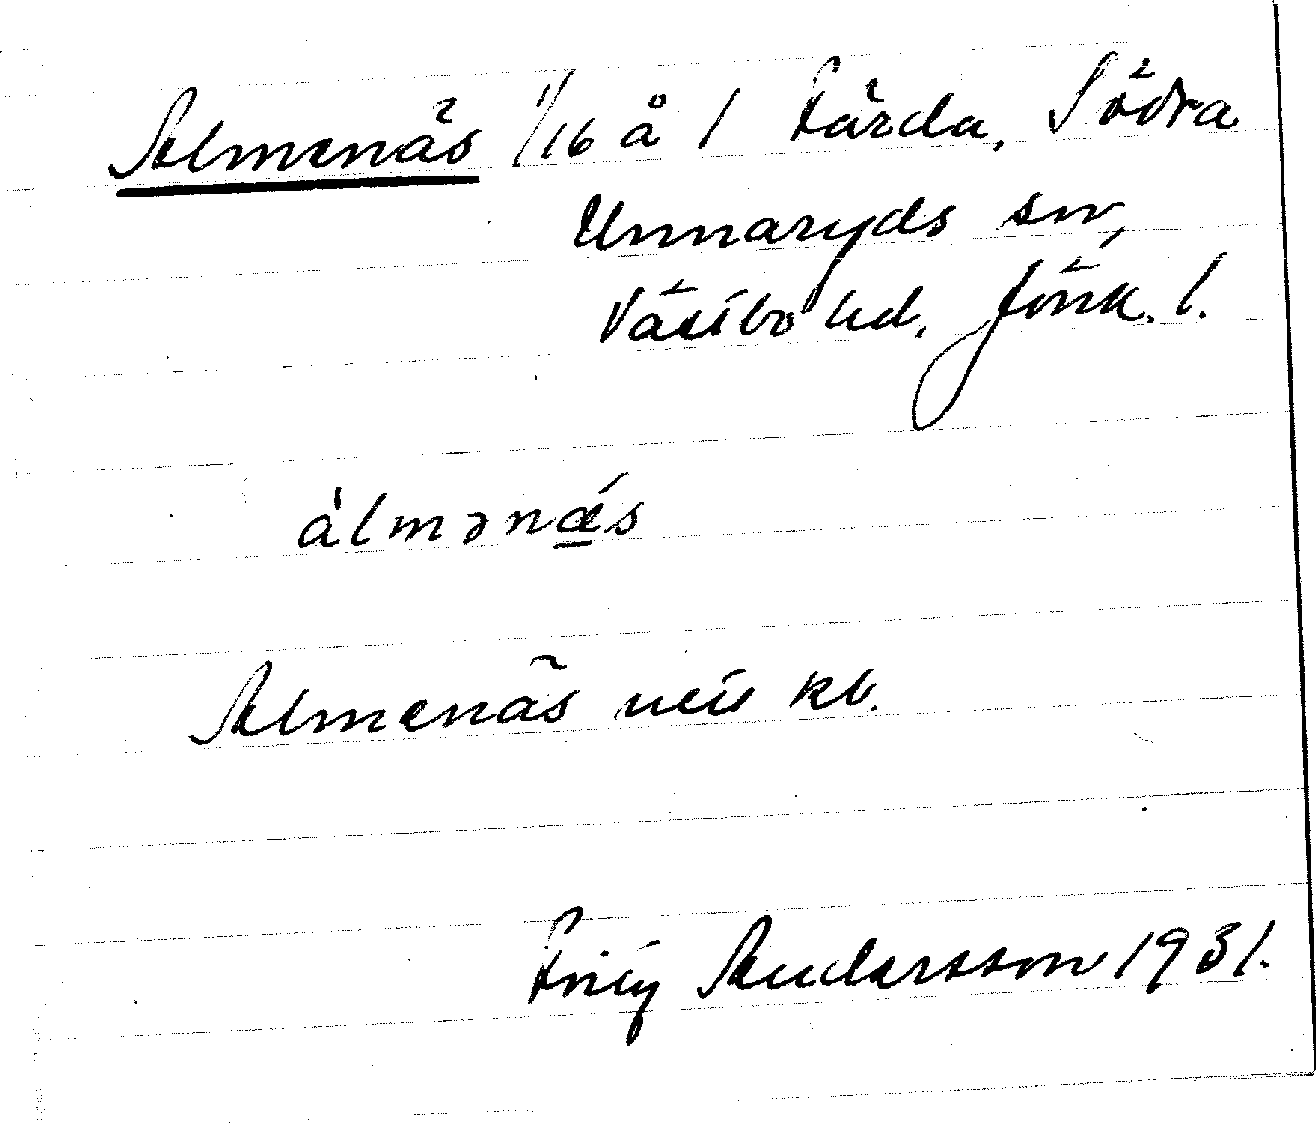 Almenäs 1/16 å 1 Färda, Södra
Unnaryds sn,
Västbo hd, Jönk. l.
àlmənǽs
Almenäs
kb.
Andersson 1931.